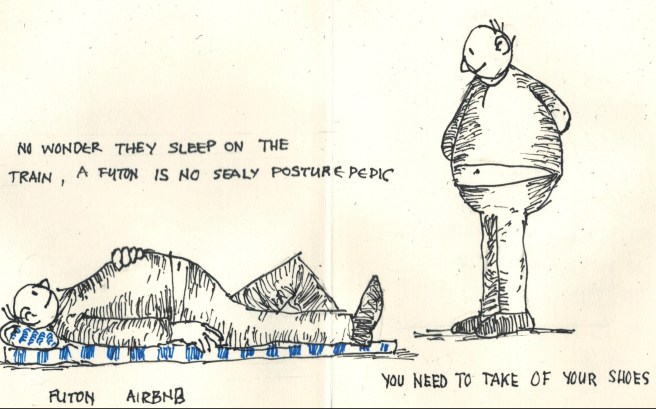 NO WONDER THEY SLEEP ON THE
TRAIN, A FUTON IS NO SEALY POSTUREPEDIC
FUTON AIRBNB
YOU NEED TO TAKE OF YOUR SHOES